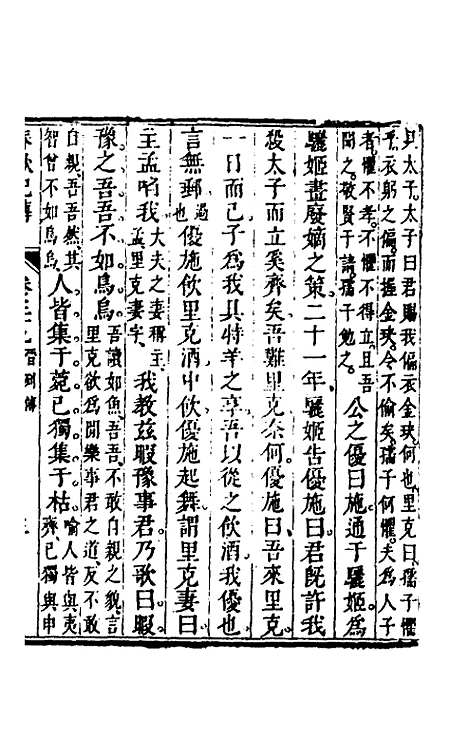 見太子太子曰君賜我偏衣金玦何也里克曰孺子懼
乎衣躬之偏而握金玦令不偷矣孺子何懼夫為人子
者懼不孝不懼不得立且吾
聞之敬賢于請孺子勉之公之優曰施通于驪姬為
驪姬畫廢嫡之策二十一年驪姬告優施曰君既許我
殺太子而立奚齊矣吾難里克奈何優施曰吾來里克
一日而已子為我具特羊之享吾以從之飲酒我優也
言無郵過也優施飲里克酒中飲優施起舞謂里克妻曰
主孟啗我大夫之妻稱主孟里克妻字我教茲暇豫事君乃歌曰暇
豫之吾吾不如鳥烏吾讀如魚吾吾不敢自親之貌言里克欲為閒樂事君之道反不敢
自親吾吾然其智曾不如鳥烏人皆集于菀已獨集于枯喻人皆與奚齊已獨與申
春秋已傳
卷之二九晉列傳